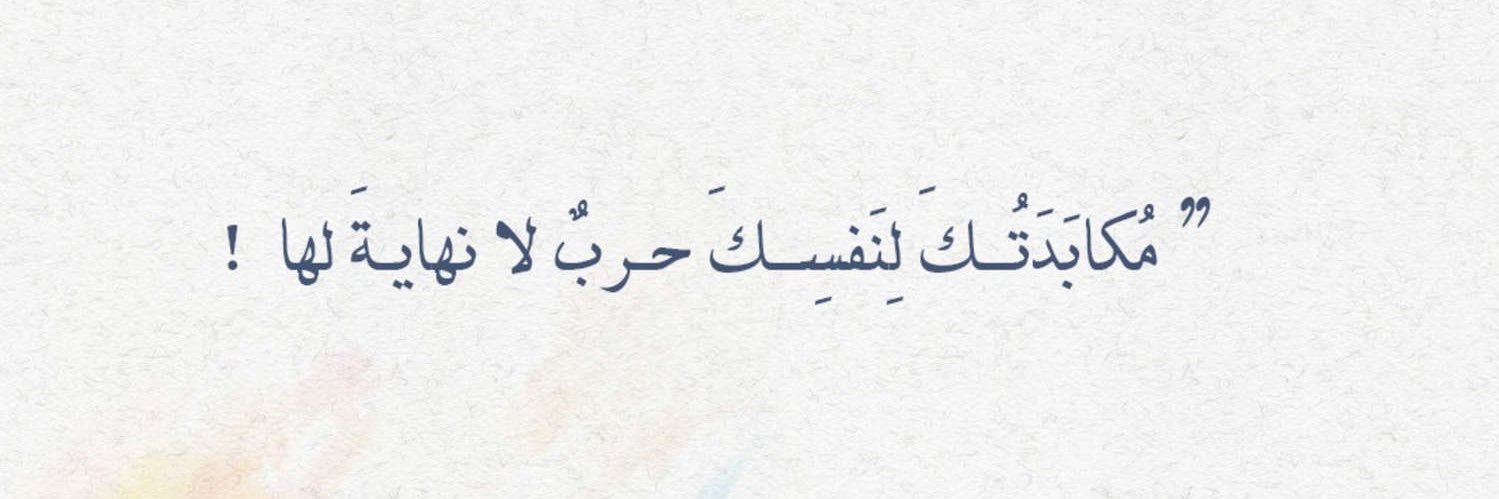 ” مُكابَدَتُــكَ لِنَفسِــكَ حـربٌ لا نهايـةَ لها !